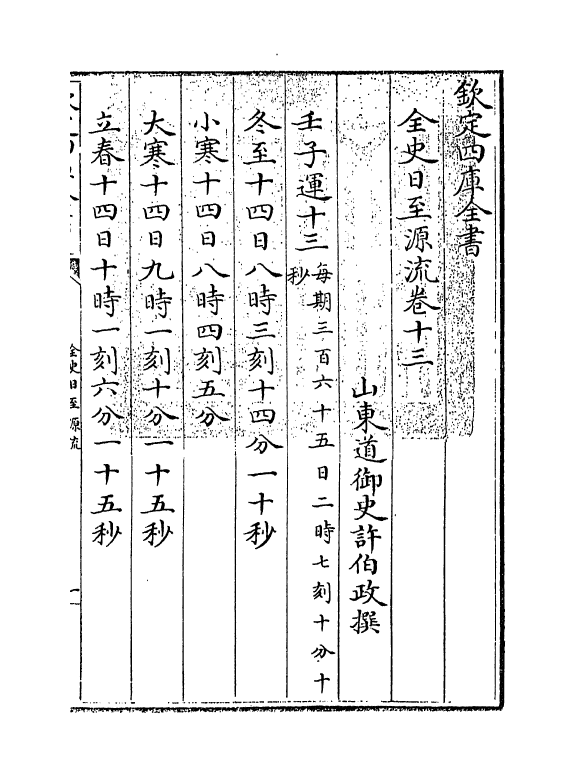 欽定四庫全書
全史日至源流卷十三
山東道御史許伯政撰
壬子運十三每期三百六十五日二時七刻十分十
秒
冬至十四日八時三刻十四分一十秒
小寒十四日八時四刻五分
大寒十四日九時一刻十分一十五秒
立春十四日十時一刻六分一十五秒
全史日至源流
一